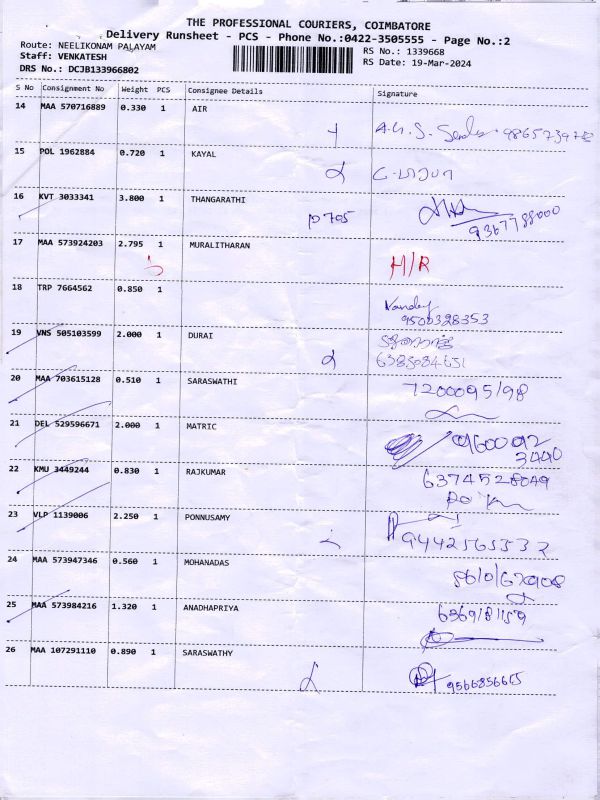 THE PROFESSIONAL COURIERS, COIMBATORE
Delivery Runsheet - PCS - Phone No.:0422-3505555 - Page No.:2
Route: NEELIKONAM PALAYAM
RS No.: 1339668
Staff: VENKATESH
RS Date: 19-Mar-2024
DRS No.: DCJB133966802
S No Consignment No Weight PCS Consignee Details Signature
14 MAA 570716889 0.330 1 AIR
15 POL 1962884 0.720 1 KAYAL
16 KVT 3033341 3.800 1 THANGARATHI
9367788000
17 MAA 573924203 2.795 1 MURALITHARAN H/R
18 TRP 7664562 0.850 1
9500328353
19 VNS 505103599 2.000 1 DURAI
6385084651
20 MAA 703615128 0.510 1 SARASWATHI 7200095198
21 DEL 529596671 2.000 1 MATRIC
22 KMU 3449244 0.830 1 RAJKUMAR 6374528049
23 VLP 1139006 2.250 1 PONNUSAMY
9442565532
24 MAA 573947346 0.560 1 MOHANADAS
25 MAA 573984216 1.320 1 ANADHAPRIYA 6369181159
26 MAA 107291110 0.890 1 SARASWATHY